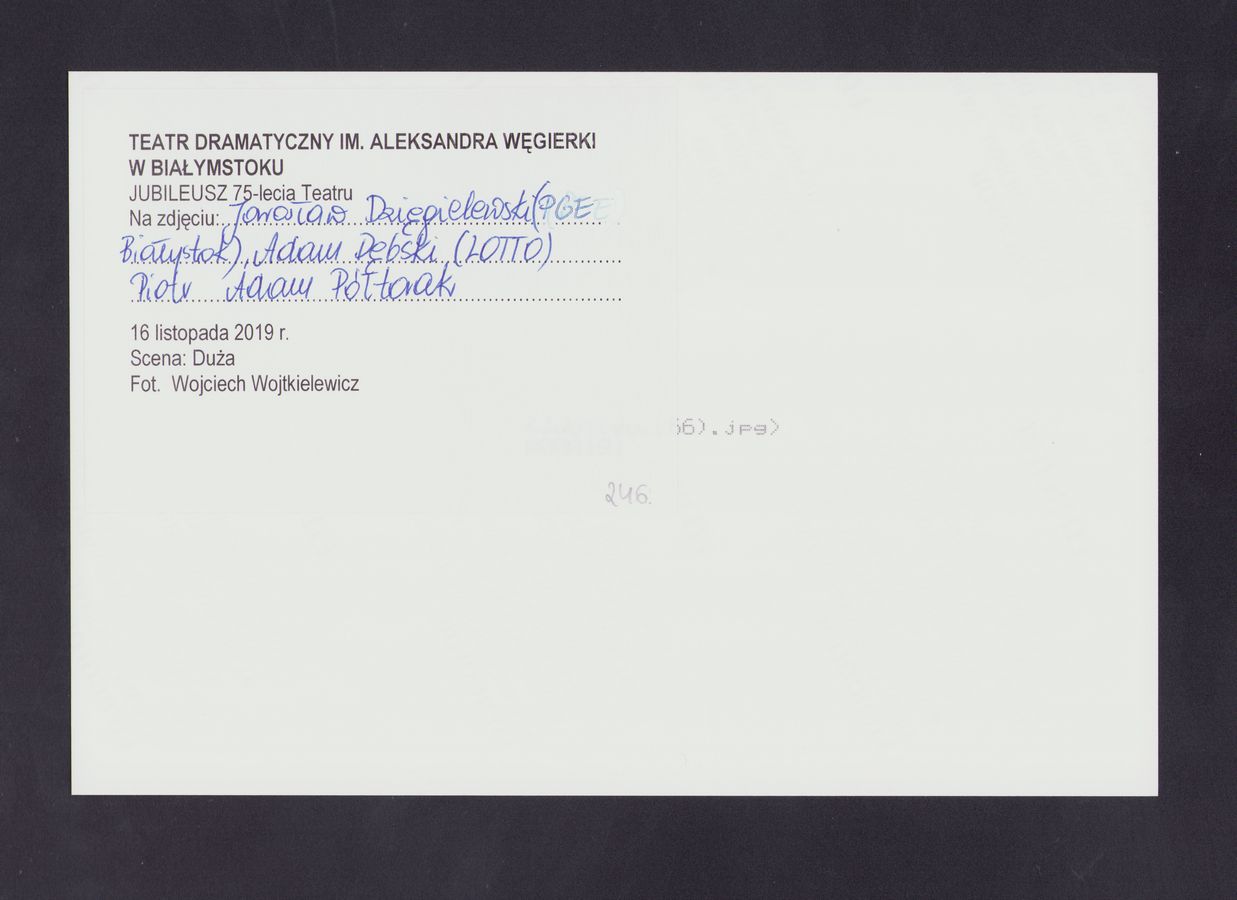 TEATR DRAMATYCZNY IM. ALEKSANDRA WĘGIERKI
W BIAŁYMSTOKU
JUBILEUSZ 75-lecia Teatru
Na zdjęciu: Jarosław Dzięgielewski (PGE
Białystok), Adam Dębski (LOTTO)
Piotr Adam Półtorak
16 listopada 2019 r.
Scena: Duża
Fot. Wojciech Wojtkielewicz
6).jpg)
246.